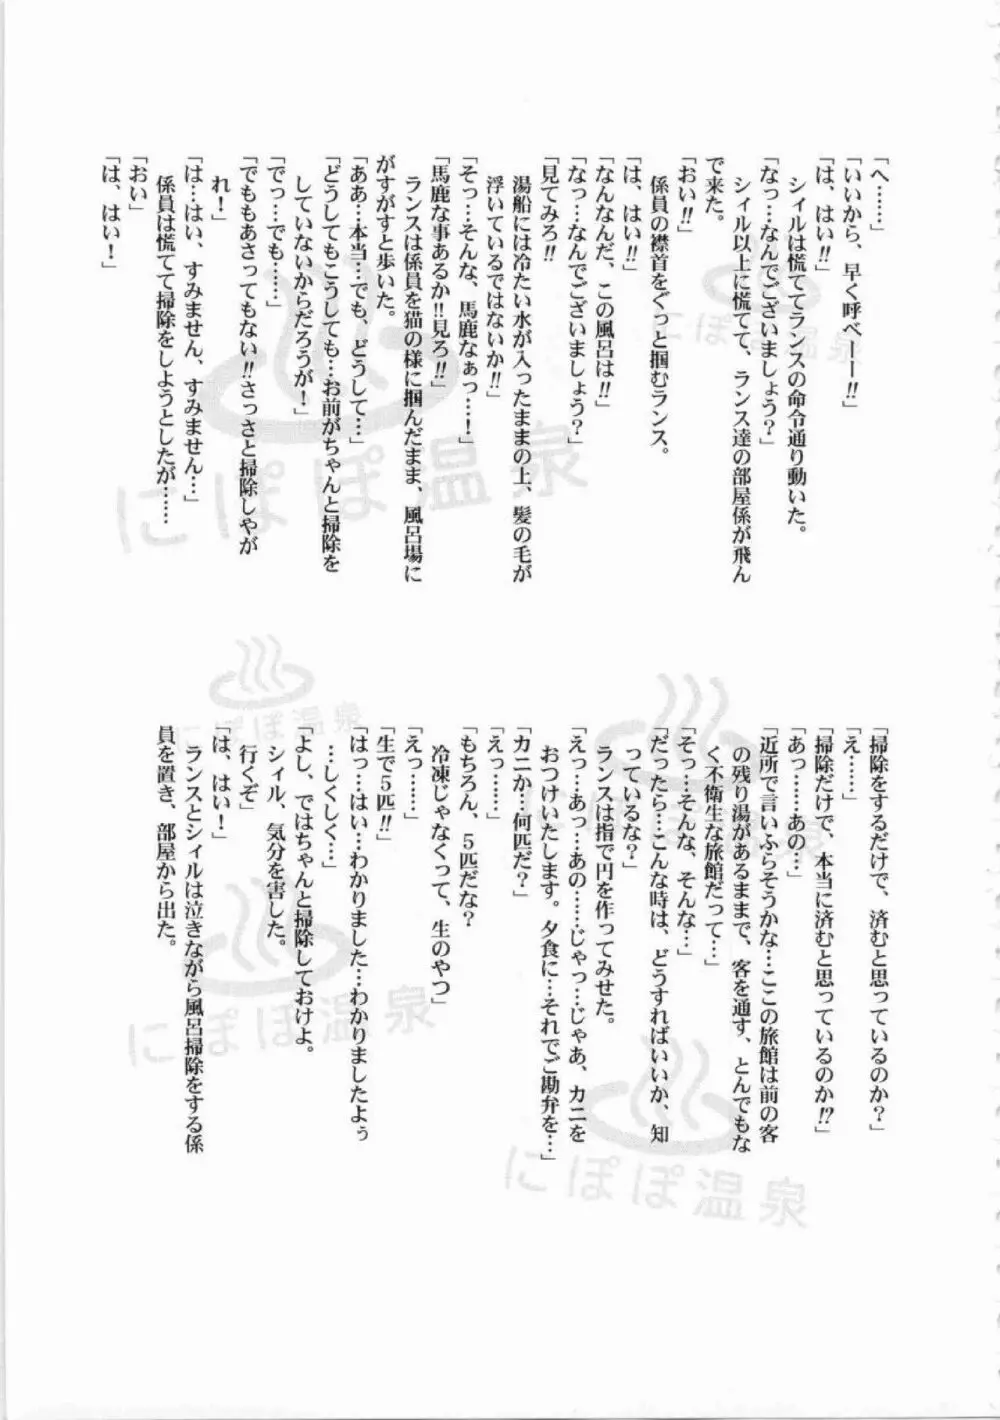 「へ……」
「いいから、早く呼べーー!!」
「は、はい!!」
シィルは慌ててランスの命令通り動いた。
「なっ…なんでございましょう？」
シィル以上に慌てて、ランス達の部屋係が飛ん
で来た。
「おい!!」
係員の襟首をぐっと掴むランス。
「は、はい!!」
「なんなんだ、この風呂は!!」
「なっ…なんでございましょう？」
「見てみろ!!
湯船には冷たい水が入ったままの上、髪の毛が
浮いているではないか!!」
「そっ…そんな、馬鹿なぁっ…！」
「馬鹿な事あるか!!見ろ!!」
ランスは係員を猫の様に掴んだまま、風呂場に
がすがすと歩いた。
「ああ…本当…でも、どうして…」
「どうしてもこうしても…お前がちゃんと掃除を
していないからだろうが！」
「でっ…でも……」
「でももあさってもない!!さっさと掃除しやが
れ！」
「は…はい、すみません、すみません…」
係員は慌てて掃除をしようとしたが……
「おい」
「は、はい！」
「掃除をするだけで、済むと思っているのか？」
「え……」
「掃除だけで、本当に済むと思っているのか!?」
「あっ……あの…」
「近所で言いふらそうかな…ここの旅館は前の客
の残り湯があるままで、客を通す、とんでもな
く不衛生な旅館だって…」
「そっ…そんな、そんな…」
「だったら…こんな時は、どうすればいいか、知
っているな？」
ランスは指で円を作ってみせた。
「えっ…あっ…あの……じゃっ…じゃあ、カニを
おつけいたします。夕食に…それでご勘弁を…」
「カニか…何匹だ？」
「えっ……」
「もちろん、5匹だな？
冷凍じゃなくって、生のやつ」
「えっ……」
「生で5匹!!」
「はっ…はい…わかりました…わかりましたよぅ
…しくしく…」
「よし、ではちゃんと掃除しておけよ。
シィル、気分を害した。
行くぞ」
「は、はい！」
ランスとシィルは泣きながら風呂掃除をする係
員を置き、部屋から出た。
にぽぽ温泉
にぽぽ温泉
にぽぽ温泉
にぽぽ温泉
にぽぽ温泉
にぽぽ温泉